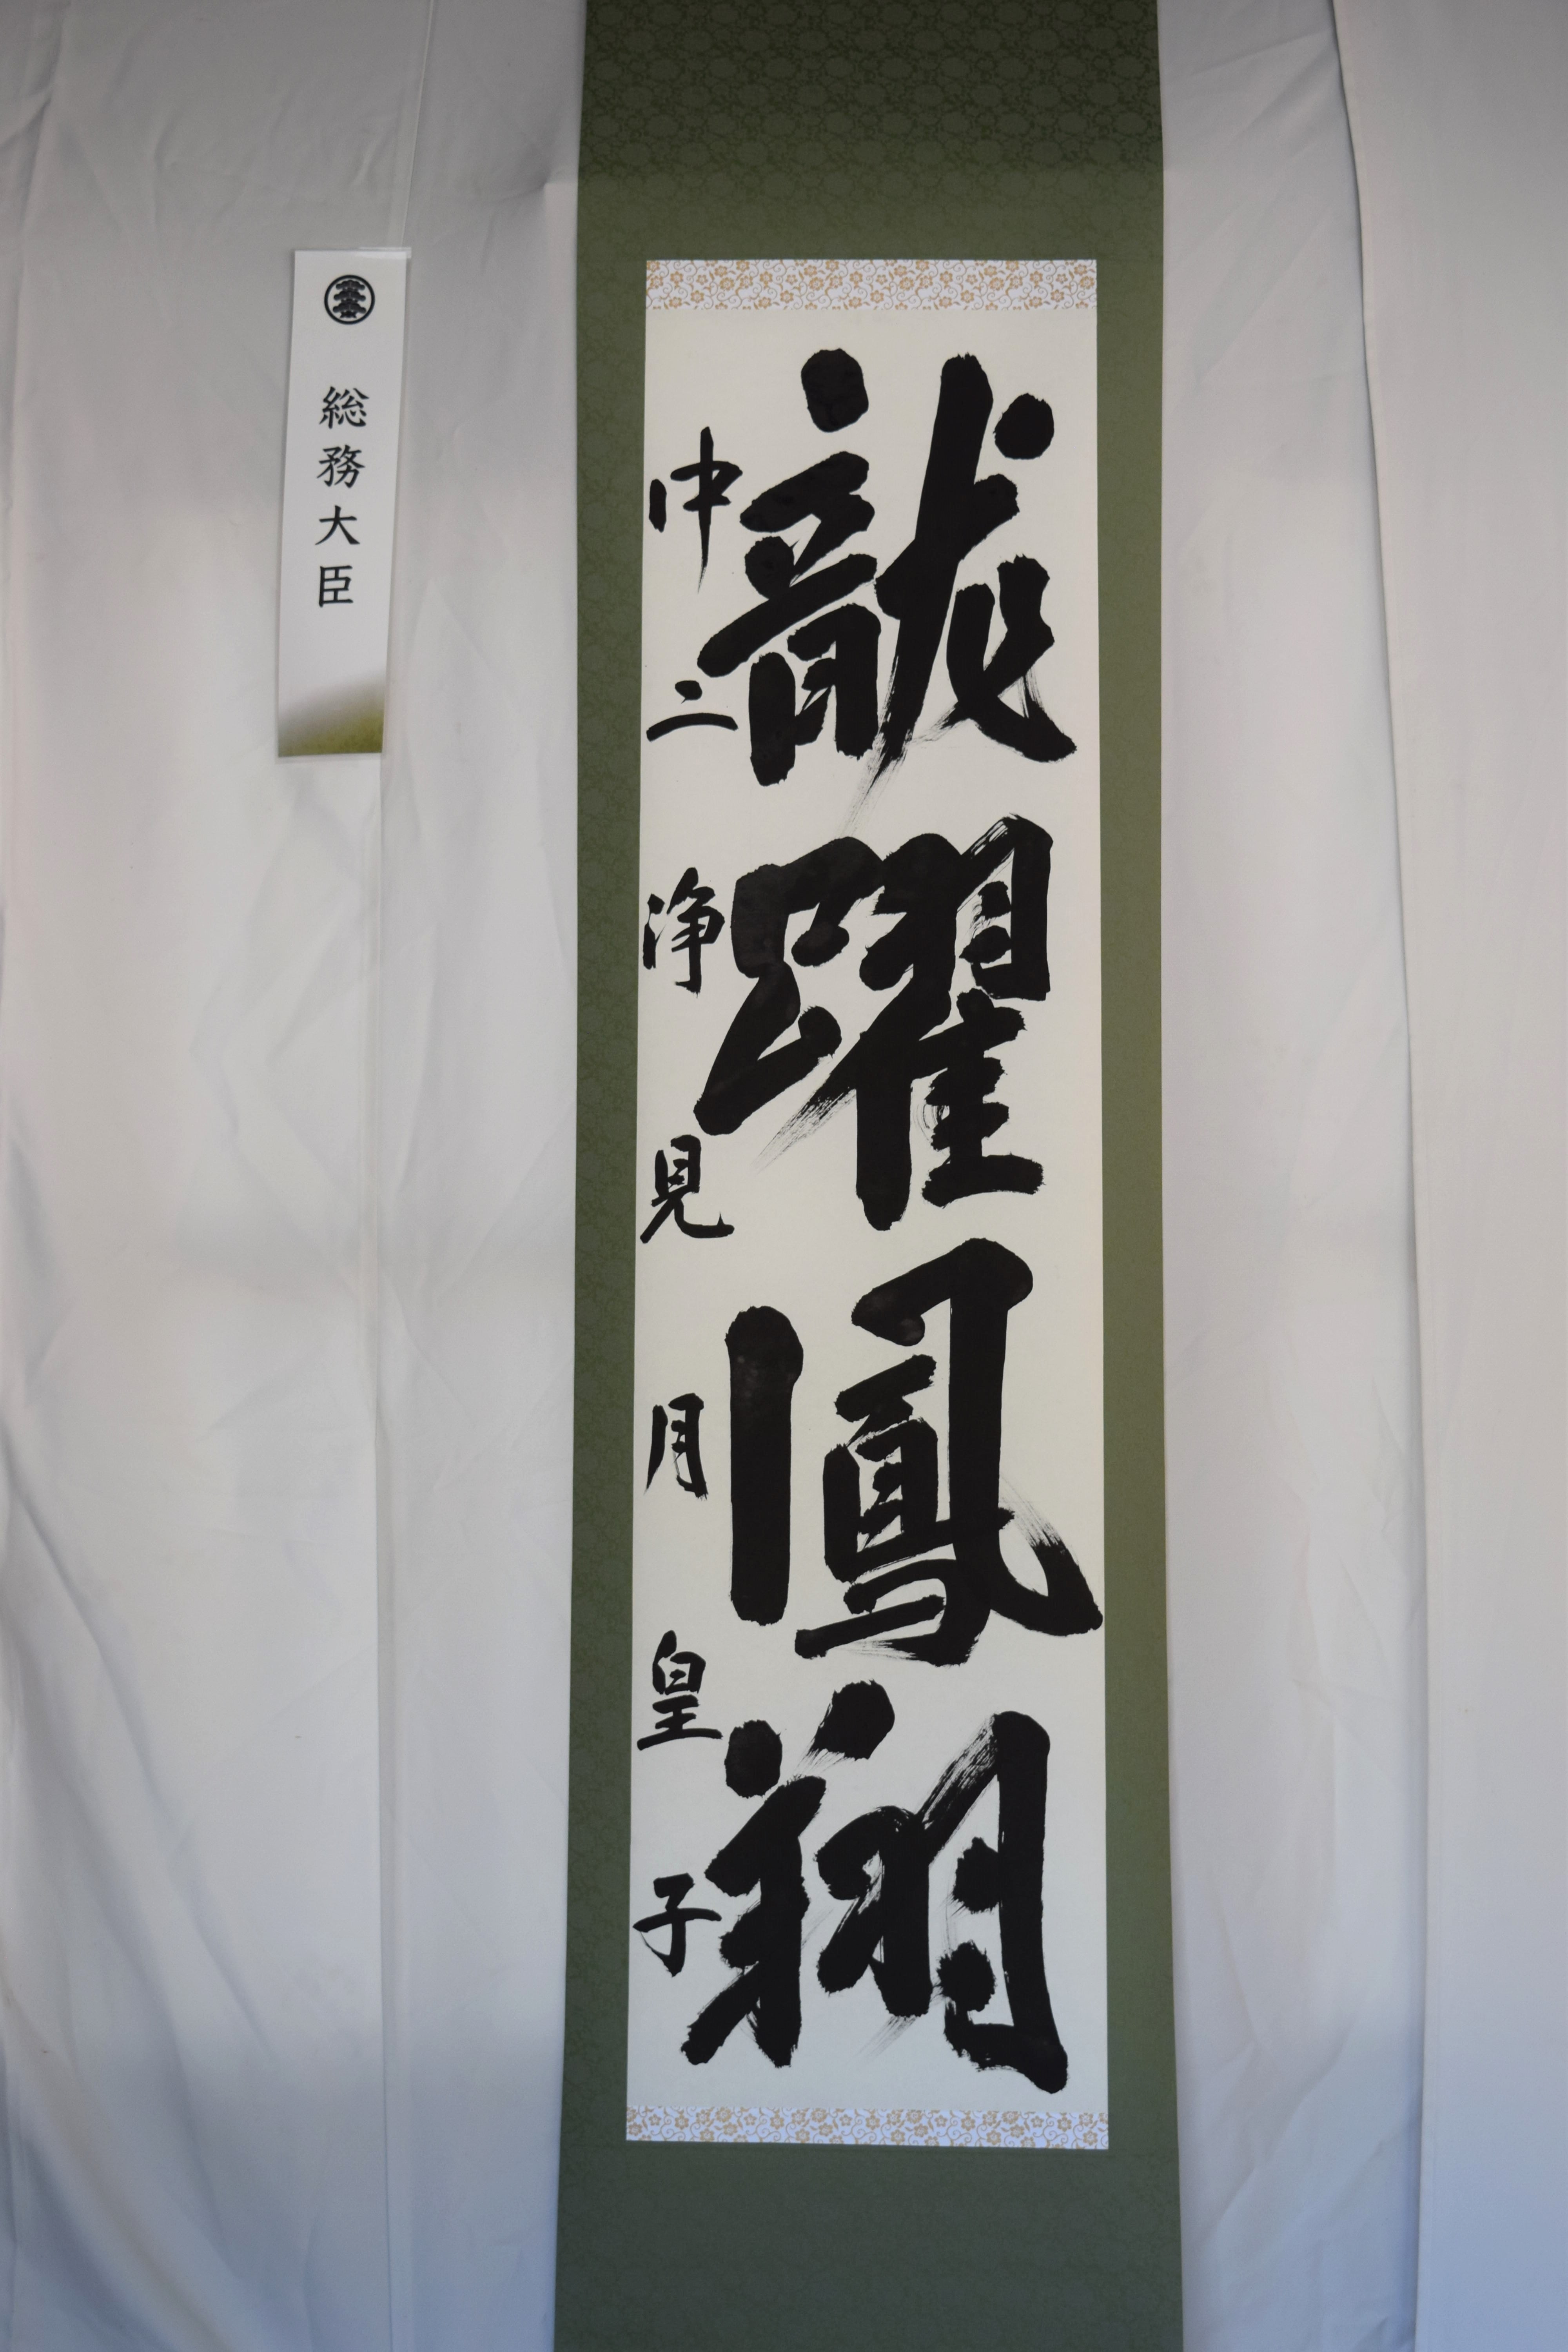 龍躍鳳翔
中二 浄見月皇子
総務大臣